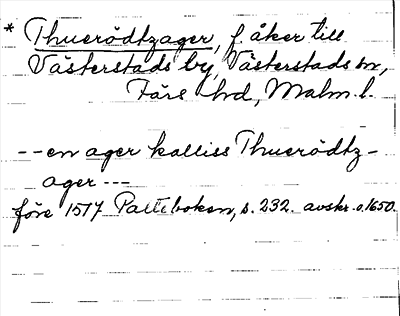 * Thuerödtzager, f. åker till
Västerstads by, Västerstads sn,
Färs hd, Malm. l.
-- en ager kalliss Thuerödtz-
ager ---
före 1517 Palteboken, s. 232. avskr. o. 1650.